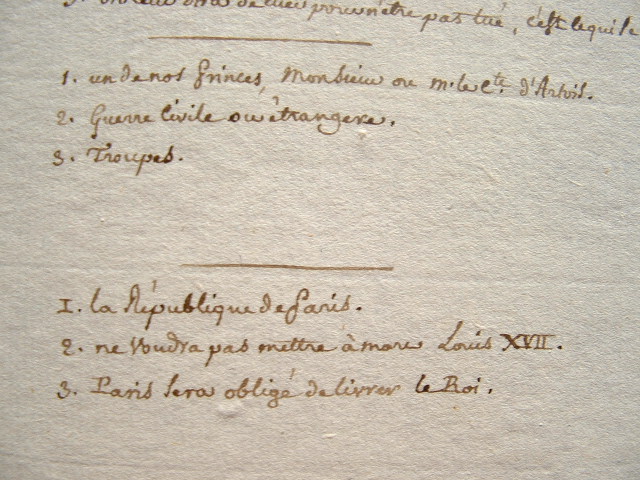 de tuer pour n'être pas tué, c'est lequel
1. un de nos Princes, Monsieur ou m. le Cte. d'Artois.
2. Guerre Civile ou étrangere.
3. Troupes.
1. la République de Paris.
2. ne voudra pas mettre à mort Louis XVII.
3. Paris sera obligé de livrer le Roi.